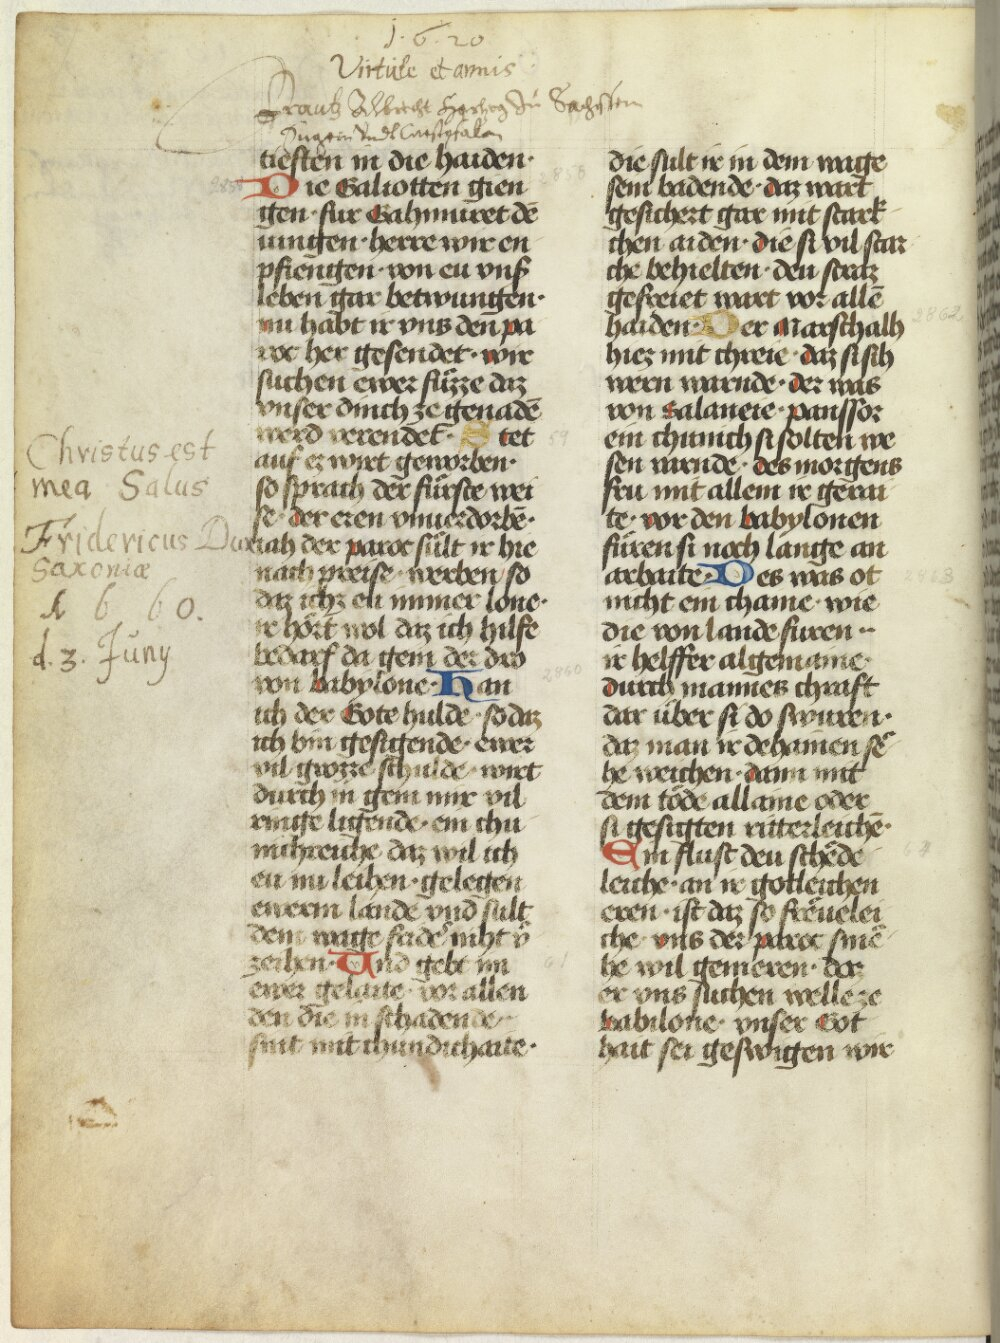 1·6·20
Virtute et armis
Frantz Albrecht Hertzog zu Sachssen
Engern undt Westpfalen
tiesten in die haiden·
Die Galiotten gien
gen·fur Gahmuret dē
iungen·herre wir en
pfiengen·von eu vnß
leben gar betwungen·
nu habt ir vns den pa
roc her gesendet·wir
suchen ewer fůzze daz
vnser dinch ze genadē
werd verendet·Stet
auf ez wirt geworben·
so sprach der fürste wei
se·der eren vnuerdorbē·
iah der paroc sült ir hie
nach preise·werben so
daz ichz eu immer lone·
ir hört wol daz ich hilfe
bedarf da gein der dro
von babylone·Han
ich der Gote hulde·so daz
ich bin gesigende·ewer
vil grozze schulde·wirt
durch in gein mir vil
ringe ligende·ein chu
nichreiche daz wil ich
eu nu leihen·gelegen
ewerm lande vnd sult
dem wage fader niht v̄
zeihen·Und gebt im
ewer gelaite·vor allen
den die in schadende·
sint mit chundichaite·
Christus est
mea Salus
Fridericus Dux
Saxoniæ
1 6 6 0.
d. 3. Juny
die sult ir in dem wage
sein badende·daz wart
gesichert gar mit stark
chen aiden·die si vil star
che behielten·den straz
gefreiet wart vor allē
haiden·Der Marschalh
hiez mit chreie·daz si sich
wern warnde·der was
von Galaneie·panssor
ein chunich si solten we
sen varnde·des morgens
fru mit allem ir gerai
te·vor den babylonen
füren si noch lange an
arbaite·Des was ot
nicht ein chaine·wie
die von lande furen··
ir helffer algemaine·
durch mannes chraft
dar über si do swuren·
daz man ir dehainen se
he weichen·dann mit
dem tode allaine oder
si gesigten ritterleichē·
Ein flust deu schēde
leiche·an ir gotleichen
eren·ist daz so freuelei
che·vns der paroc smē
he wil gemeren·daz
er vns suchen welle ze
babilone·vnser Got
hait sei geswigen wir
2858
2862
59
2863
2860
61